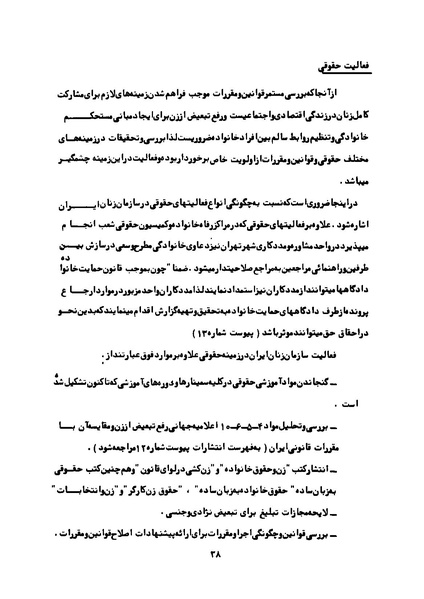 فعالیت حقوقی
ازآنجا که بررسی مستمر قوانین و مقررات موجب فراهم شدن زمینه های لازم برای مشارکت
کامل زنان در زندگی اقتصادی و اجتماعیست و رفع تبعیض از زن برای ایجاد مبانی مستحکم
خانوادگی و تنظیم روابط سالم بین افراد خانواده ضروریست لذا بررسی و تحقیقات در زمینه های
مختلف حقوقی و قوانین و مقررات از اولویت خاص برخوردار بوده و فعالیت در این زمینه چشمگیر
میباشد .
در اینجا ضروری است که نسبت به چگونگی انواع فعالیتهای حقوقی در سازمان زنان ایران
اشاره شود . علاوه بر فعالیتهای حقوقی که در مراکز رفاه خانواده و کمیسیون حقوقی شعب انجام
میپذیرد در واحد مشاوره و مددکاری شهر تهران نیز دعاوی خانوادگی مطرح و سعی در سازش بین
طرفین و راهنمائی مراجعین به مراجع صلاحیتدار میشود . ضمنا "چون بموجب قانون حمایت خانواده
دادگاهها میتوانند از مددکاران نیز استمداد نمایند لذا مددکاران واحد مزبور در موارد ارجاع
پرونده از طرف دادگاههای حمایت خانواده به تحقیق و تهیه گزارش اقدام مینمایند که بدین نحو
در احقاق حق میتوانند موثر باشد ( پیوست شماره ۱۳ )
فعالیت سازمان زنان ایران در زمینه حقوقی علاوه بر موارد فوق عبارتند از .
ــ گنجاندن مواد آموزشی حقوقی در کلیه سمینارها و دوره های آموزشی که تاکنون تشکیل شده
است .
ــ بررسی و تحلیل مواد ۴ــ۵ــ۶ــ۱۰ اعلامیه جهانی رفع تبعیض از زن و مقایسه آن با
مقررات قانونی ایران ( به فهرست انتشارات پیوست شماره ۱۲ مراجعه شود ) .
ــ انتشار کتب "زن و حقوق خانواده" و "زن کشی در لوای قانون" و هم چنین کتب حقوقی
به زبان ساده" حقوق خانواده به زبان ساده" ، "حقوق زن کارگر" و "زن و انتخابات"
ــ لایحه مجازات تبلیغ برای تبعیض نژادی و جنسی .
ــ بررسی قوانین و چگونگی اجرا و مقررات برای ارائه پیشنهادات اصلاح قوانین و مقررات .
۳۸